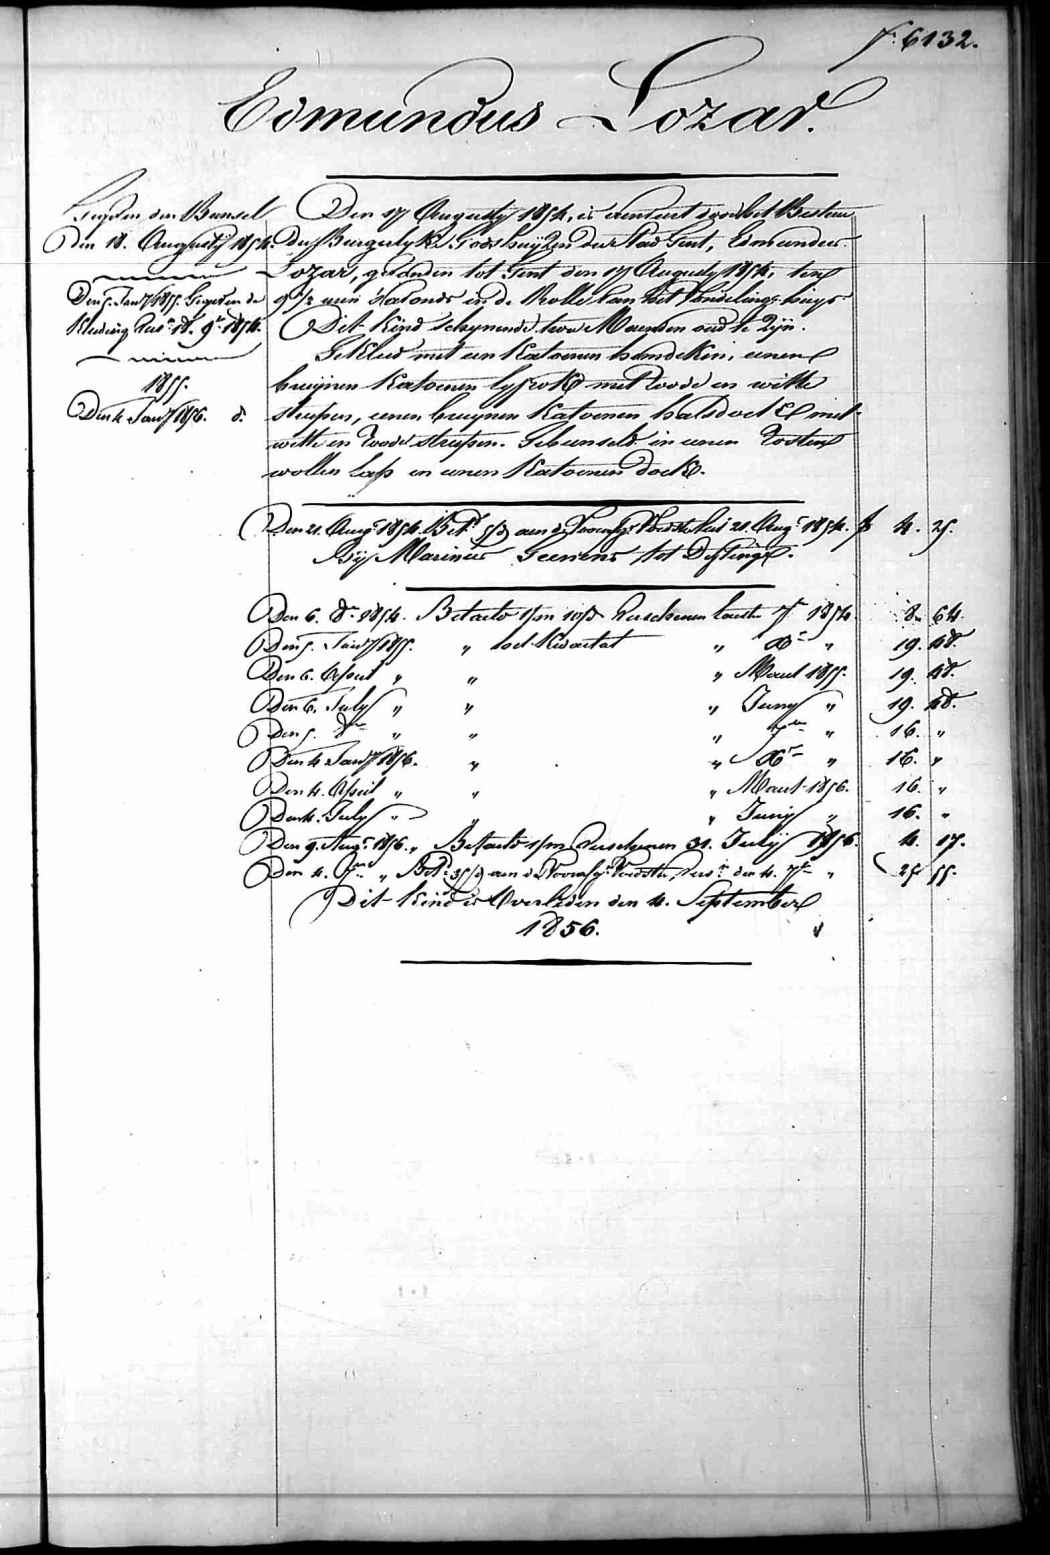 f° 6132.
Edmundus Lozar.
Gegeven den Bunsel
Den 18. Augusty 1854.
Den 5. Janry 1855. Gegeven de
Kleding Vers. 18. 9br 1854.
1855.
Den 4 Janry 1856. d°
Den 17 Augusty 1854, is aenveert door het Bestuur
der Burgerlyke Godshuyzen der Stad Gent, Edmundus
Lozar, gevonden tot Gent den 17 Augusty 1854, ten
9 1/2 uren 's avonds in de Rolle van het Vondelinge-huys
Dit Kind schynende twee Maenden oud te Zijn.
Gekleed met een Katoenen hemdeken, eenen
bruynen Katoenen lyfrok met roode en witte
strepen, eenen bruynen Katoenen halsdoek met
witte en roode strepen. Gebunseld in eenen rosten
wollen Lap en eenen Katoenen doek.
Den 21. Augt 1854. Betd aen d. Voorsz. Voedster tot 21. Augt 1854. f 4. 25.
By Marinus Geerens tot Destinge.
Den 6. 8br 1854. Betaeld 1/m 10/d Verschenen laeste 7br 1854. 8. 64.
Den 5. Janry 1855. " het Kwartal " Xbr " 19. 48.
Den 6. April " " " Maert 1855. 19. 48.
Den 6. July " " " Juny " 19. 48.
Den 5. 8br " " " 7br " 16. "
Den 4 Janry 1856. " " Xbr " 16. "
Den 4. April " " " Maert 1856. 16. "
Den 4. July " " " Juny " 16. "
Den 9. Augt 1856. " Betaeld 1/m Verschenen 31. July 1856. 4. 17.
Den 4. " Betd aen d. Voorsz. Voedster, Vers. den 4. 7br " 25 55.
Dit Kind is Overleden den 4. September
1856.